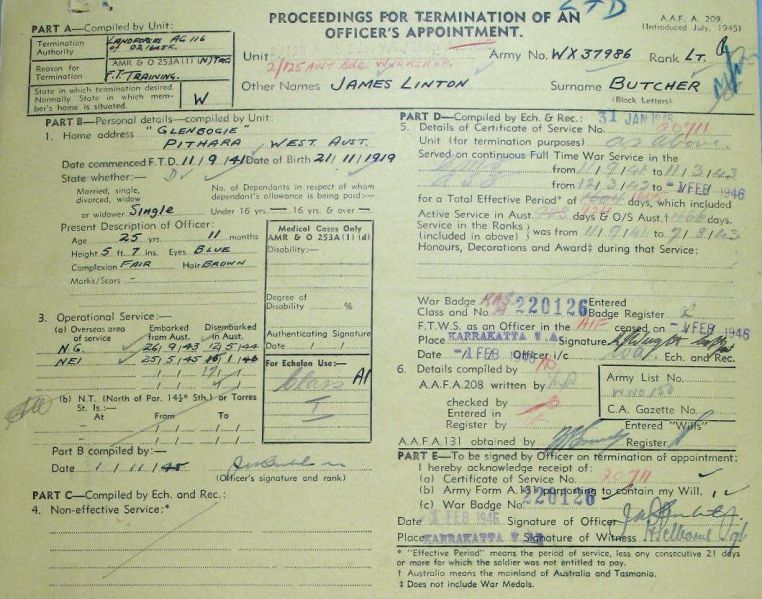 L T D
PROCEEDINGS FOR TERMINATION OF AN
OFFICER'S APPOINTMENT.
A.A.F. A. 209.
(Introduced July, 1945)
PART A—Compiled by Unit:
Termination Authority LANDFORCES AG 116
Reason for Termination AMR & O 253A(1)
F.T. TRAINING.
State in which termination desired. Normally State in which member's home is situated. W
Unit 2/125 AUST BDE WKSHOP.
Army No. WX37986 Rank LT.
Other Names JAMES LINTON Surname BUTCHER
(Block Letters)
PART B—Personal details—compiled by Unit:
1. Home address "GLENBOGIE"
PITHARA WEST. AUST.
Date commenced F.T.D. 11/9/41 Date of Birth 21/11/1919
State whether:—
Married, single, divorced, widow or widower Single
No. of Dependants in respect of whom dependant's allowance is being paid:—
Under 16 yrs. — 16 yrs. & over —
Present Description of Officer:
Age 25 yrs. 11 months
Height 5 ft. 7 ins. Eyes BLUE
Complexion FAIR Hair BROWN
Marks/Scars -
Medical Cases Only
AMR & O 253A(1) (d)
Disability:—
Degree of
Disability %
Authenticating Signature
Date / /
For Echelon Use:—
Class A1
I
3. Operational Service:—
(a) Overseas area of service Embarked from Aust. Disembarked in Aust.
N.G. 26/9/43 12/5/44
NEI 25/5/45 1/46
(b) N.T. (North of Par. 14½° Sth.) or Torres
St. Is.:—
At From To
Part B compiled by:—
Date 1/11/45
(Officer's signature and rank)
PART C—Compiled by Ech. and Rec.:
4. Non-effective Service:*
PART D—Compiled by Ech. & Rec.: 31 JAN 1946
5. Details of Certificate of Service No. 20711
Unit (for termination purposes) as above
Served on continuous Full Time War Service in the
from 11/9/41 to 11/3/43
from 12/3/43 to -1 FEB 1946
for a Total Effective Period* of days, which included
Active Service in Aust. days & O/S Aust.† 466 days.
Service in the Ranks (included in above) was from 11/9/41 to 7/8/43
Honours, Decorations and Award‡ during that Service:
War Badge Class and No. RAS A 220126 Entered Badge Register
F.T.W.S. as an Officer in the AIF ceased on -1 FEB 1946
Place KARRAKATTA W.A. Signature
Date -1 FEB 1946 Officer i/c Ech. and Rec.
6. Details compiled by
A.A.F.A.208 written by
checked by
Entered in
Register by
Army List No.
C.A. Gazette No.
A.A.F.A.131 obtained by Entered "Wills" Register
PART E—To be signed by Officer on termination of appointment:
I hereby acknowledge receipt of:
(a) Certificate of Service No. 20711
(b) Army Form A.131 purporting to contain my Will.
(c) War Badge No. 220126
Date FEB 1946 Signature of Officer
Place KARRAKATTA Signature of Witness
* "Effective Period" means the period of service, less any consecutive 21 days
or more for which the soldier was not entitled to pay.
† Australia means the mainland of Australia and Tasmania.
‡ Does not include War Medals.